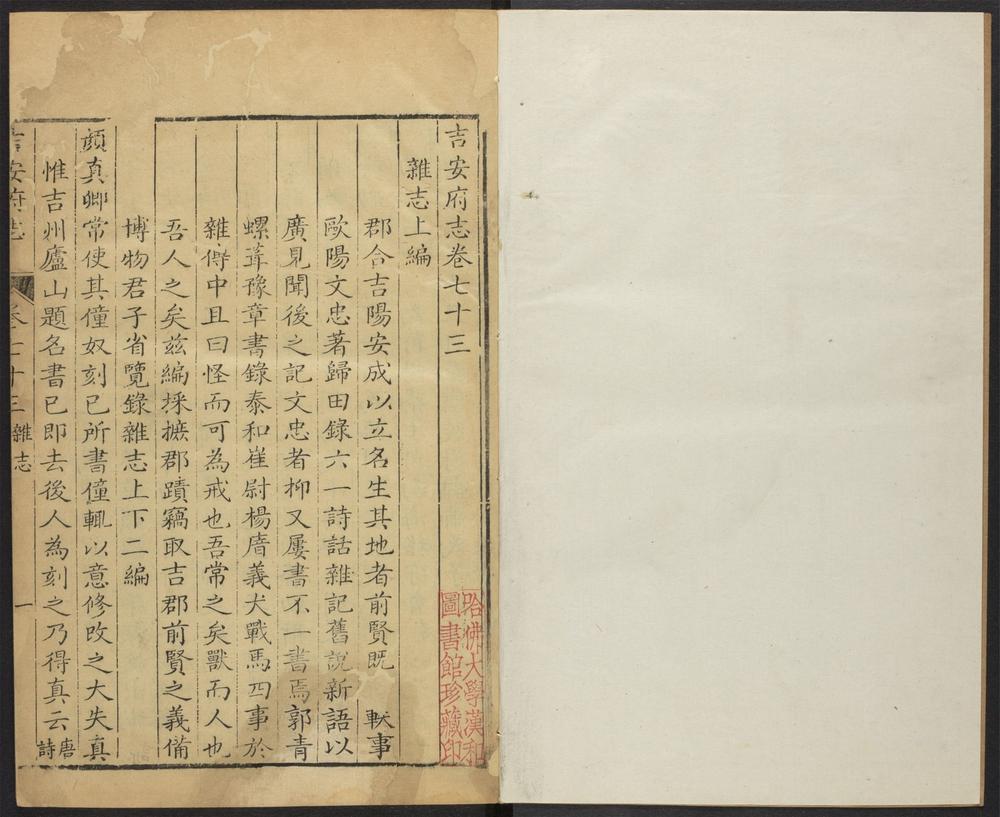 吉安府志卷七十三
雜志上編
郡合吉陽安成以立名生其地者前賢既軼事
歐陽文忠著歸田錄六一詩話雜記舊說新語以
廣見聞後之記文忠者抑又屢書不一書焉郭青
螺葺豫章書錄泰和崔尉楊厝義犬戰馬四事於
雜傳中且曰怪而可為戒也吾常之矣獸而人也
吾人之矣茲編採摭郡蹟竊取吉郡前賢之義備
博物君子省覽錄雜志上下二編
顏真卿常使其僮奴刻已所書僮輒以意修改之大失真
惟吉州廬山題名書已即去後人為刻之乃得真云唐
詩
吉安府志 卷七十三 雜志 一
哈佛大學漢和
圖書館珍藏印